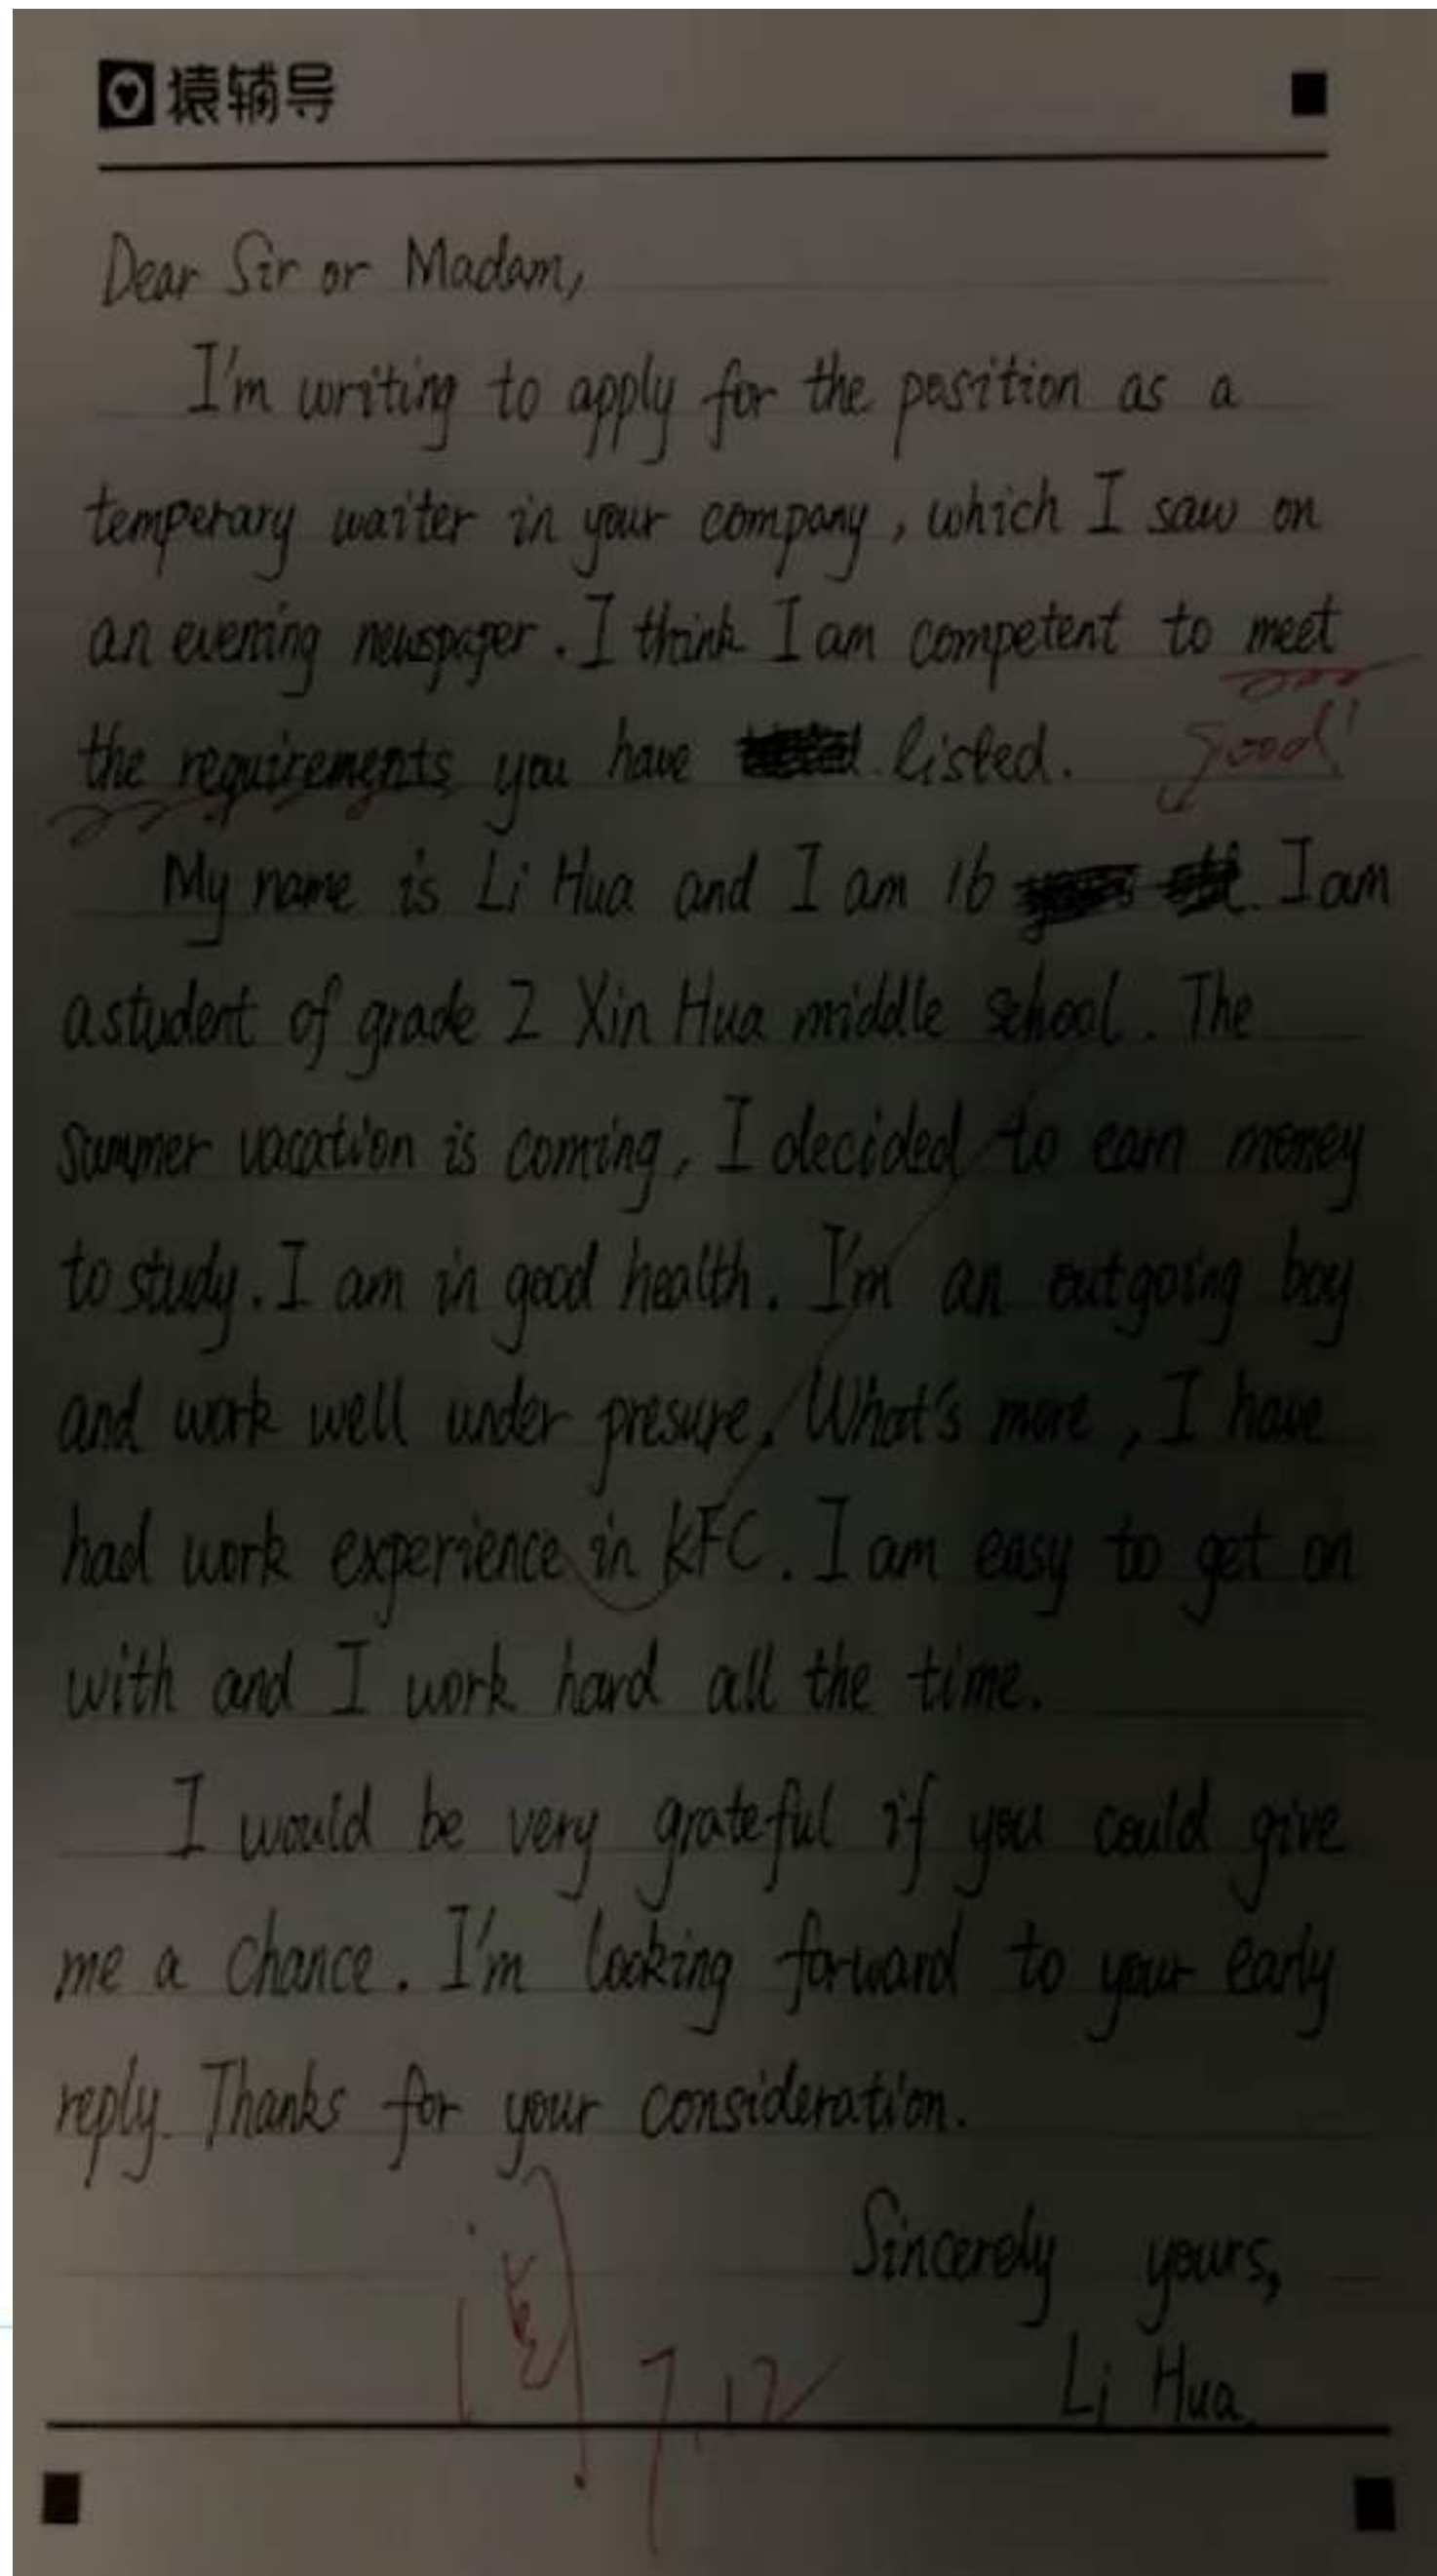 猿辅导
Dear Sir or Madam,
I'm writing to apply for the position as a
temperary waiter in your company, which I saw on
an evening newspaper. I think I am competent to meet
the requirements you have listed.
good!
My name is Li Hua and I am 16 I am
a student of grade 2 Xin Hua middle school. The
summer vacation is coming, I decided to earn money
to study. I am in good health. I'm an outgoing boy
and work well under presure. What's more, I have
had work experience in KFC. I am easy to get on
with and I work hard all the time.
I would be very grateful if you could give
me a chance. I'm looking forward to your early
reply. Thanks for your consideration.
Sincerely yours,
Li Hua
7.12